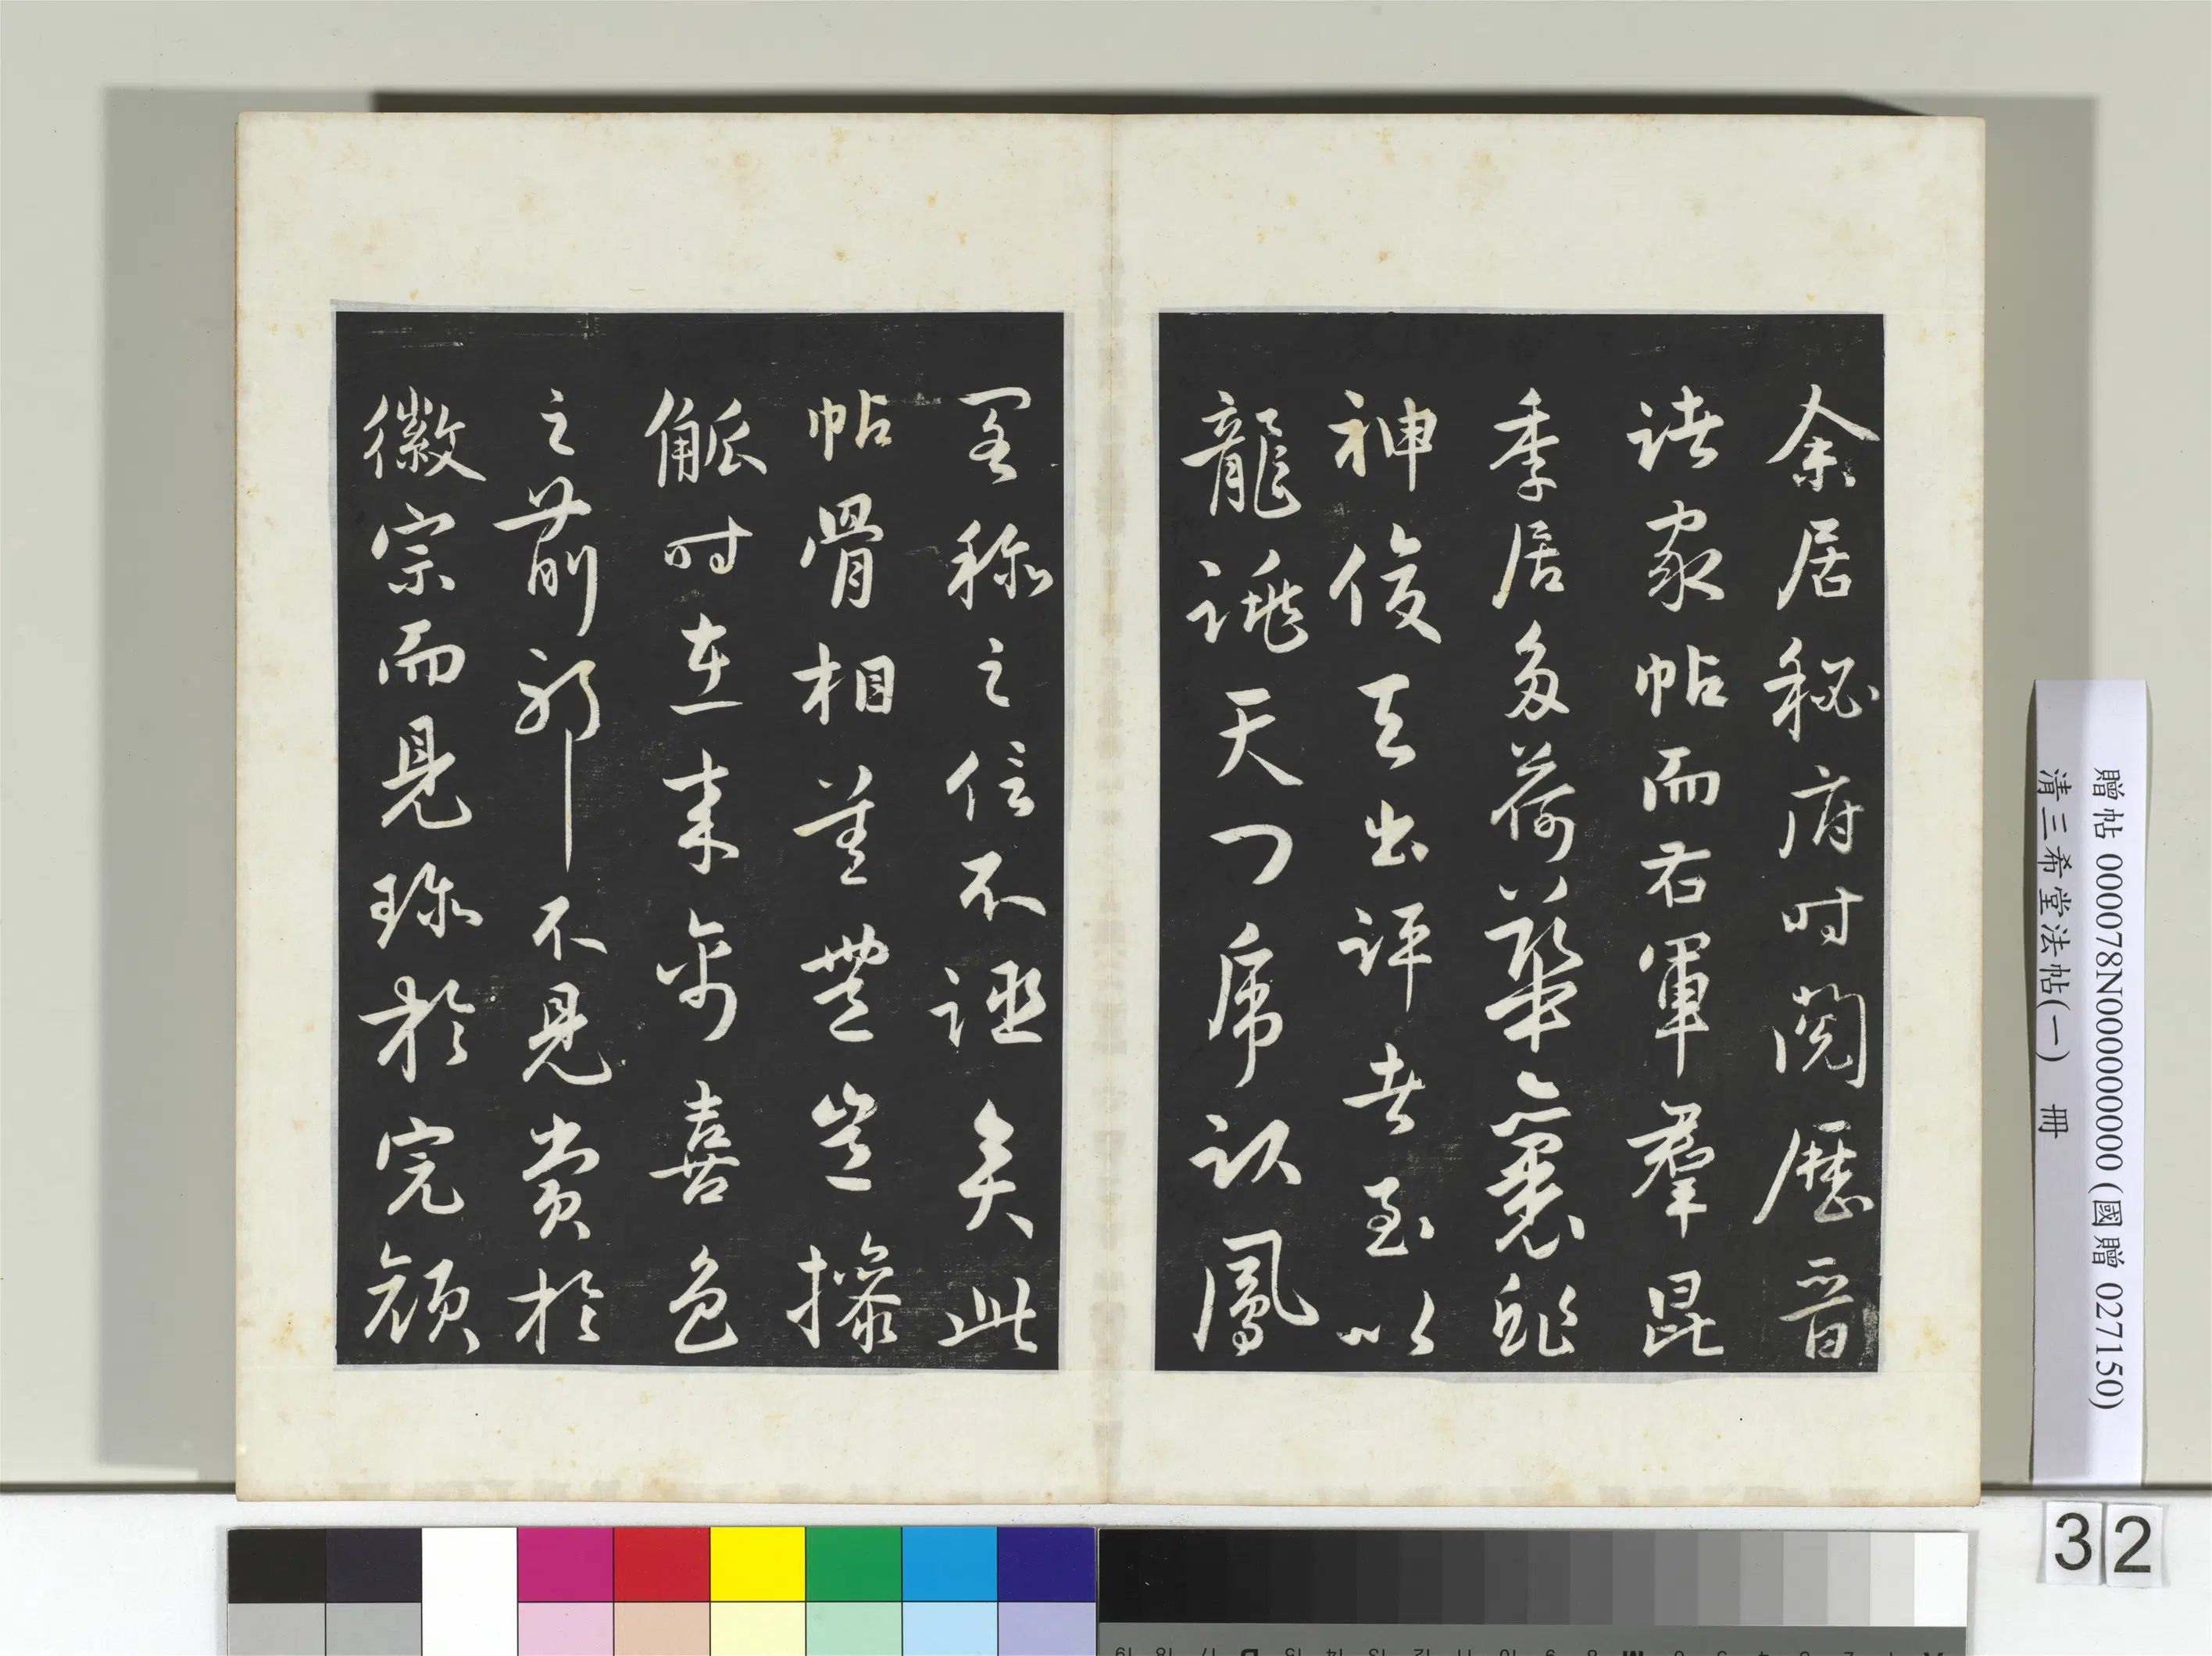 余居秘府時閱歷晉
諸家帖而右軍羣昆
季居多荷華裹鮓
神俊天出評者至以
龍跳天門虎臥鳳
閣稱之信不誣矣此
帖骨相差豐豈操
觚時在來禽喜色
之前耶不見賞於
徽宗而見珍於完顏
贈帖 000078N000000000 (國贈 027150)
清三希堂法帖(一) 冊
32